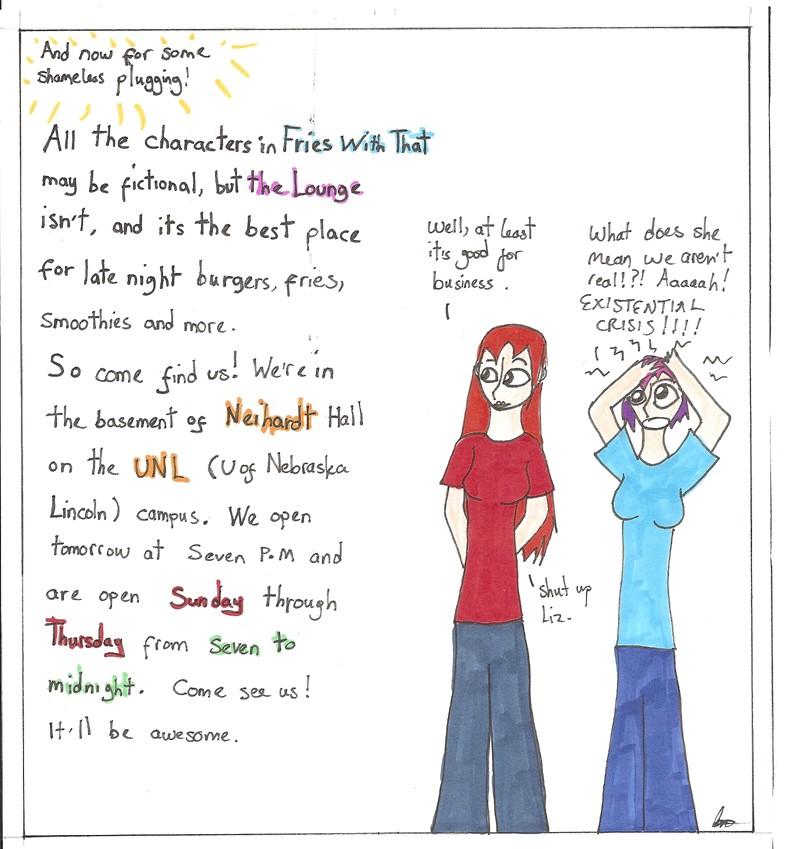 And now for some
shameless plugging!
All the characters in Fries With That
may be fictional, but the Lounge
isn't, and its the best place
for late night burgers, fries,
smoothies and more.
So come find us! We're in
the basement of Neihardt Hall
on the UNL (U of Nebraska
Lincoln) campus. We open
tomorrow at Seven P.M and
are open Sunday through
Thursday from Seven to
midnight. Come see us!
It'll be awesome.
Well, at least
it is good for
business.
What does she
mean we aren't
real!?! Aaaaah!
EXISTENTIAL
CRISIS!!!!
Shut up
Liz.